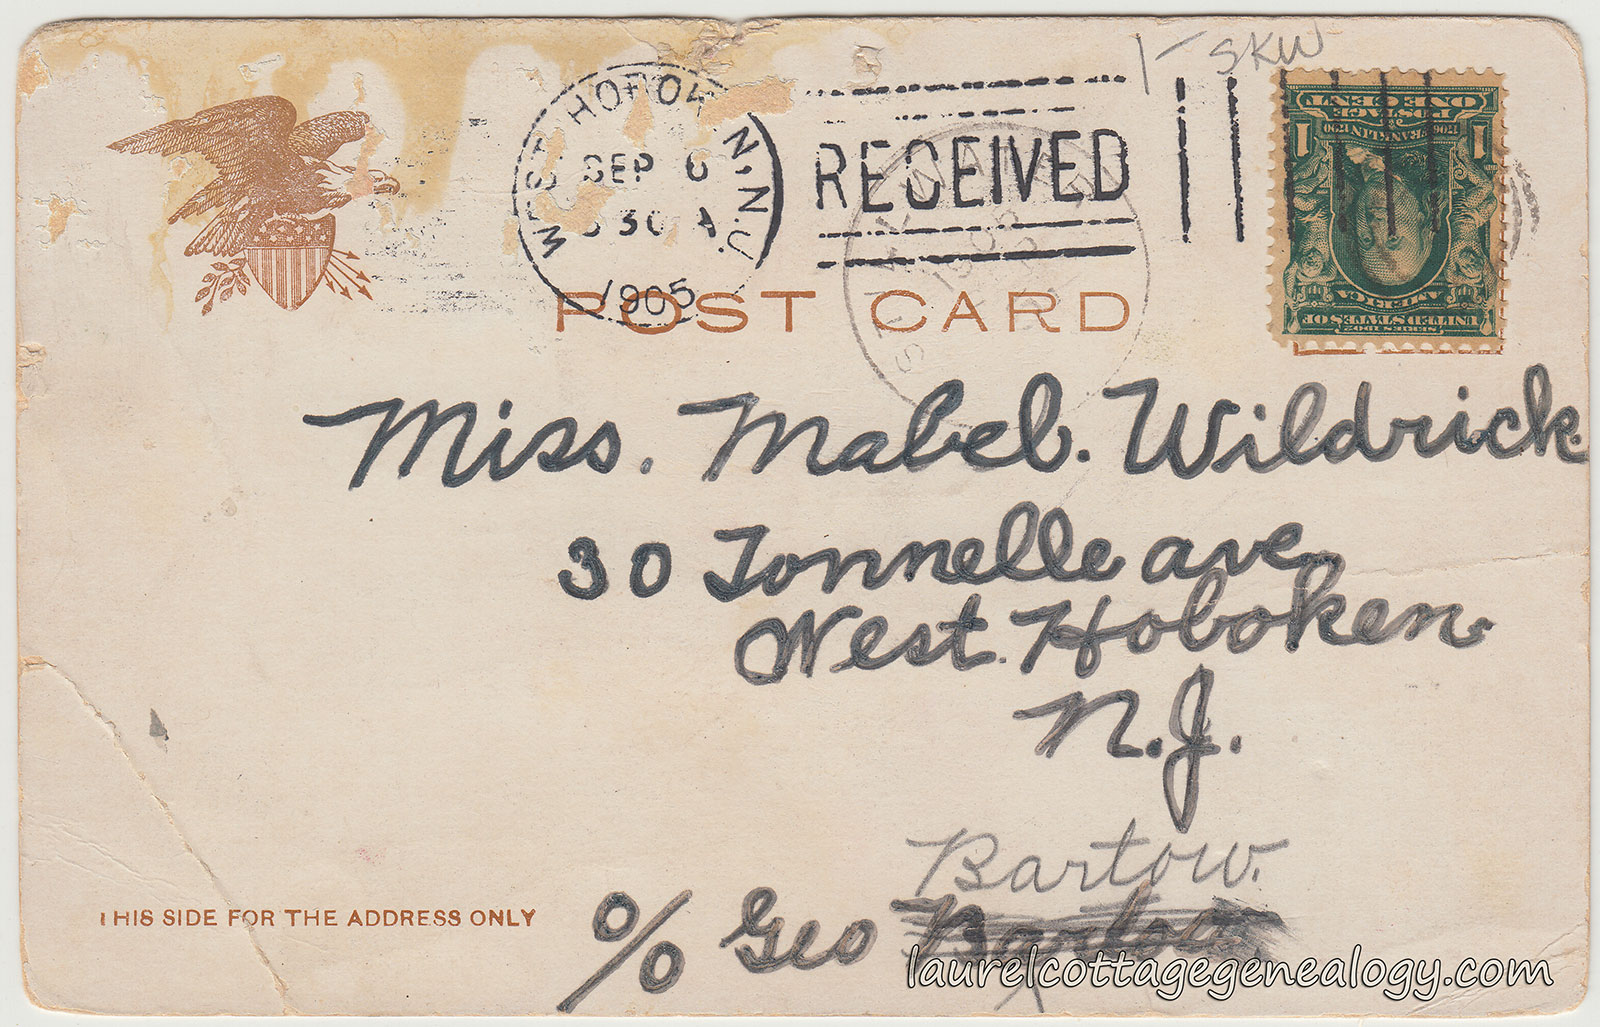 1- SKW
WEST HOBOKEN, N.J.
SEP 6
30 A
1905
RECEIVED
ONE CENT
POSTAGE
1706 FRANKLIN 1790
1 1
AMERICA
UNITED STATES OF
SERIES 1902
POST CARD
Miss. Mabel. Wildrick.
30 Tonnelle ave.
West. Hoboken.
N.J.
Bartow.
% Geo Bartow
THIS SIDE FOR THE ADDRESS ONLY
laurelcottagegenealogy.com